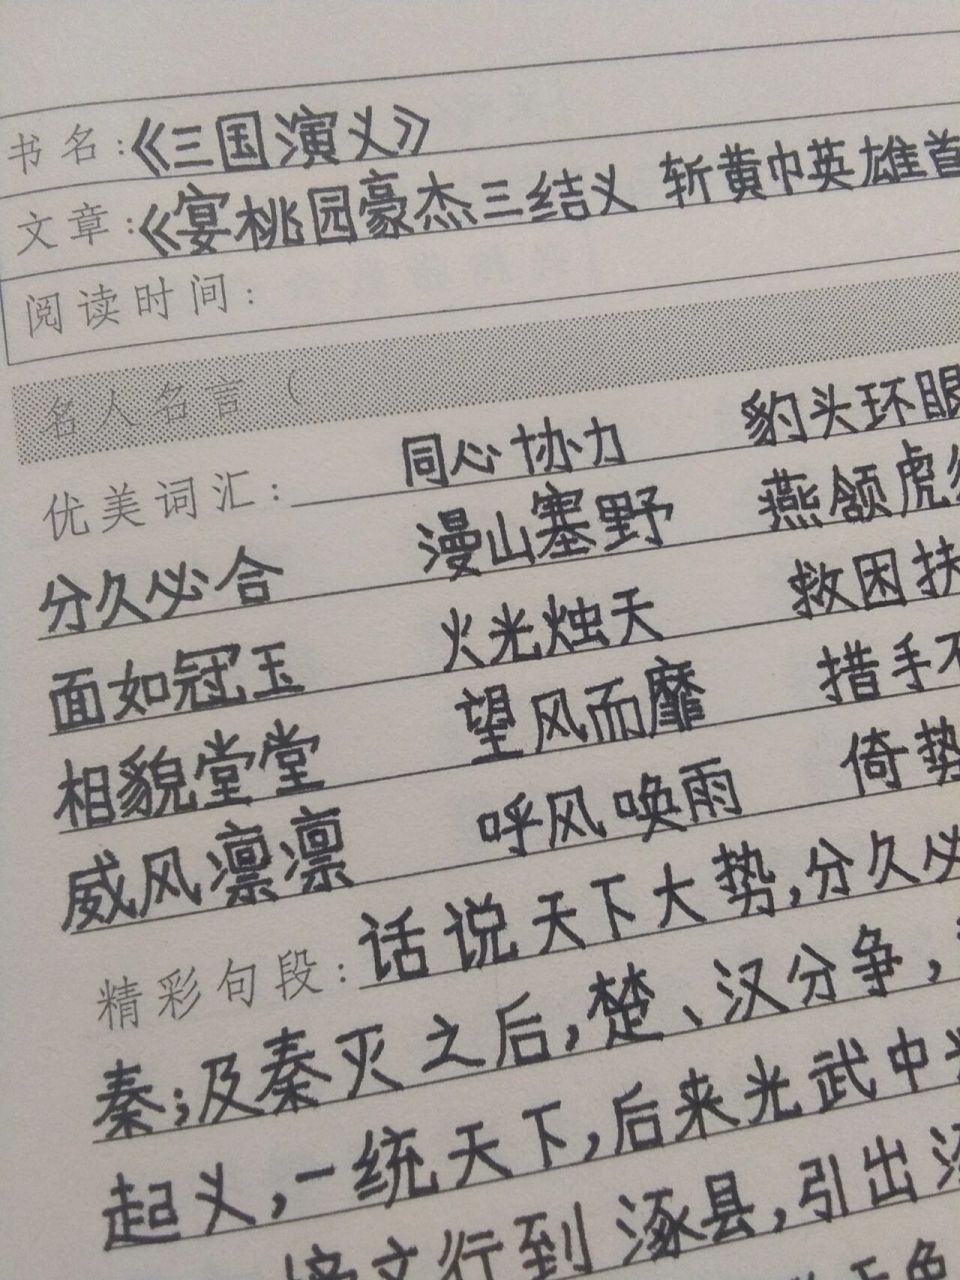 书名:《三国演义》
文章:《宴桃园豪杰三结义 斩黄巾英雄首
阅读时间:
名人名言(
优美词汇: 同心协力 豹头环眼
分久必合 漫山塞野 燕颌虎
面如冠玉 火光烛天 救困扶
相貌堂堂 望风而靡 措手不
威风凛凛 呼风唤雨 倚势
精彩句段:话说天下大势,分久必
秦;及秦灭之后,楚、汉分争,
起义,一统天下,后来光武中
榜文行到涿县,引出